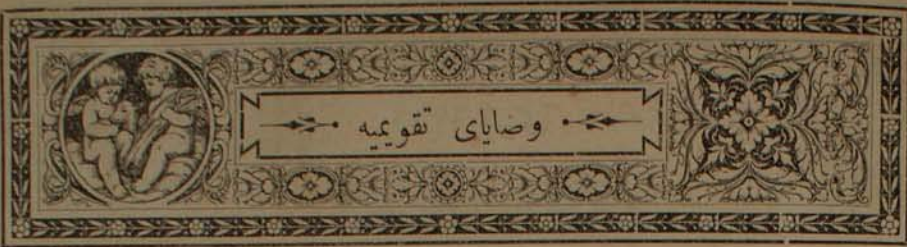 وضایای تقویمیه